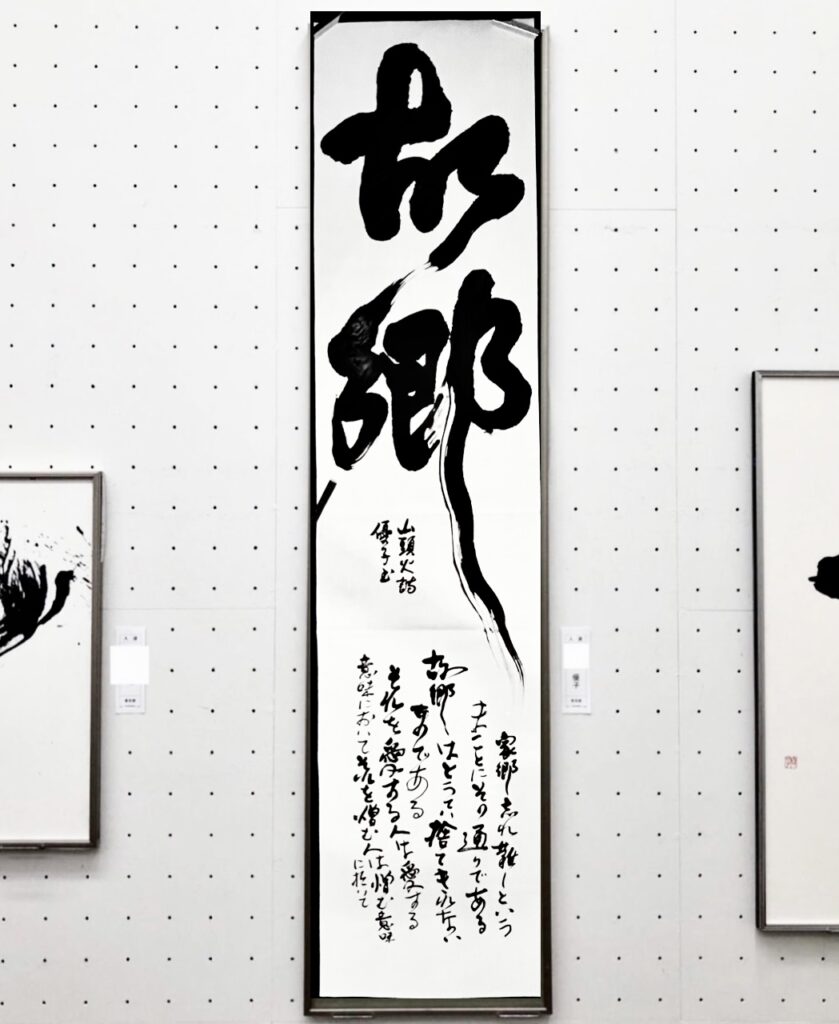 故郷
山頭火詩
優子書
家郷忘れ難しという
まことにその通りである
故郷はとうてい捨てきれない
ものである
それを愛する人は愛する
意味においてそれを憎む人は憎む意味
に於いて
入選
入選
優子